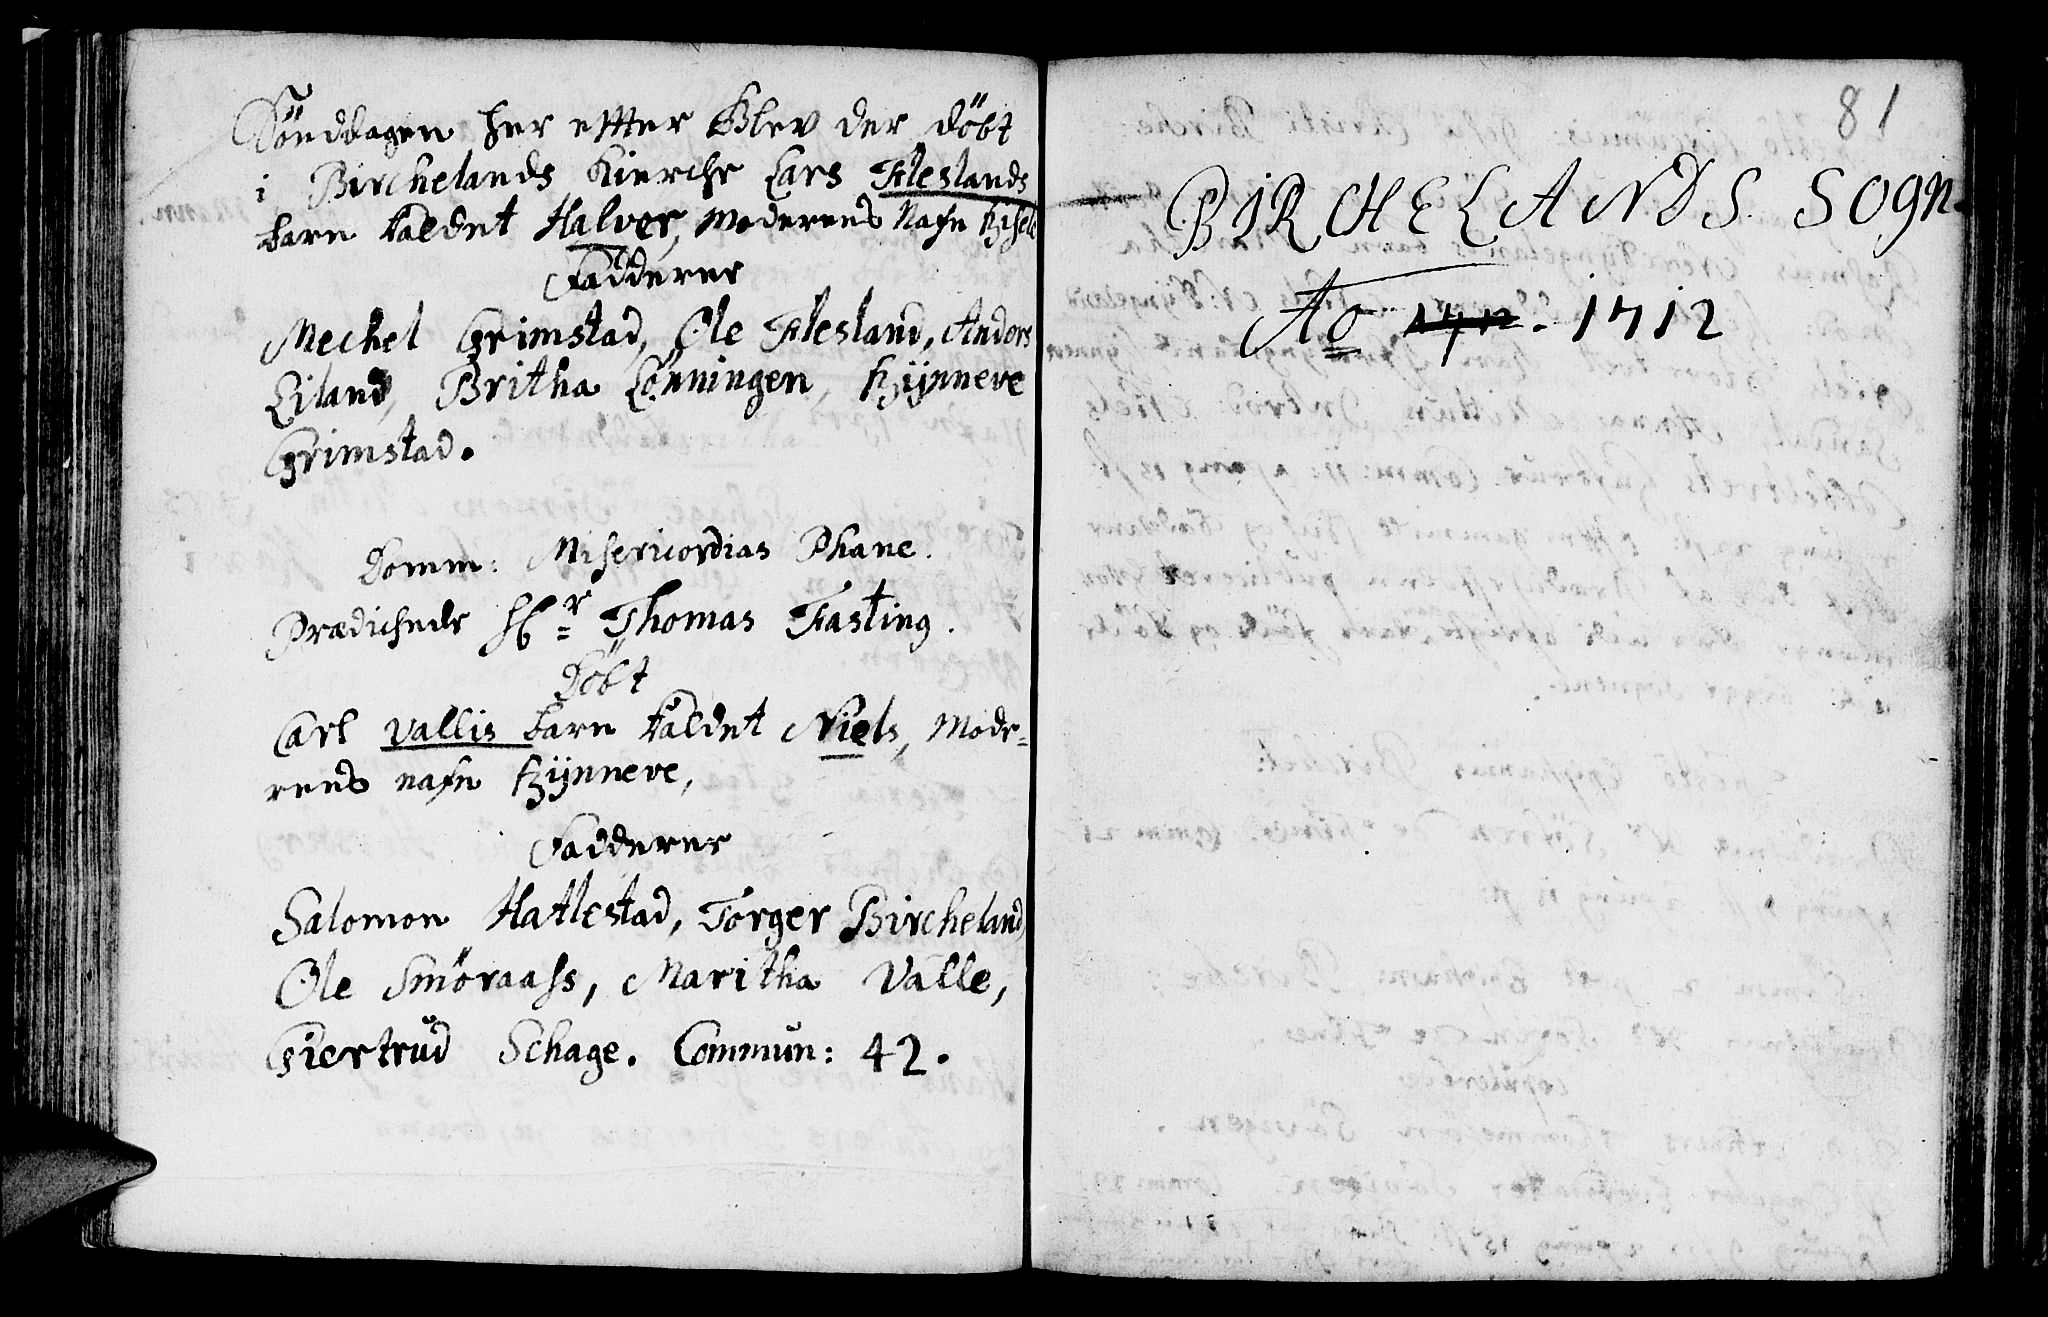 Sönddagen her efter blev der döbt
i Birchelands Kierche Lars Fleslands
barn kaldet Halver, Moderens Nafn Gisele
Fadderer
Mechel Grimstad, Ole Flesland, Anders
Liland, Britha Lönningen, Giønneve
Grimstad.
Domm: Misericordias Phane.
Prædichede Hr Thomas Fasting.
Döbt
Carl Vallis barn kaldet Niels, Mode=
rens nafn Giønneve,
Fadderer
Salomon Hatlestad, Torger Bircheland
Ole Smöraass, Maritha Valle,
Giertrud Schage. Commun: 42.
81
BIRCHELANDS SOgn.
Ao 1712